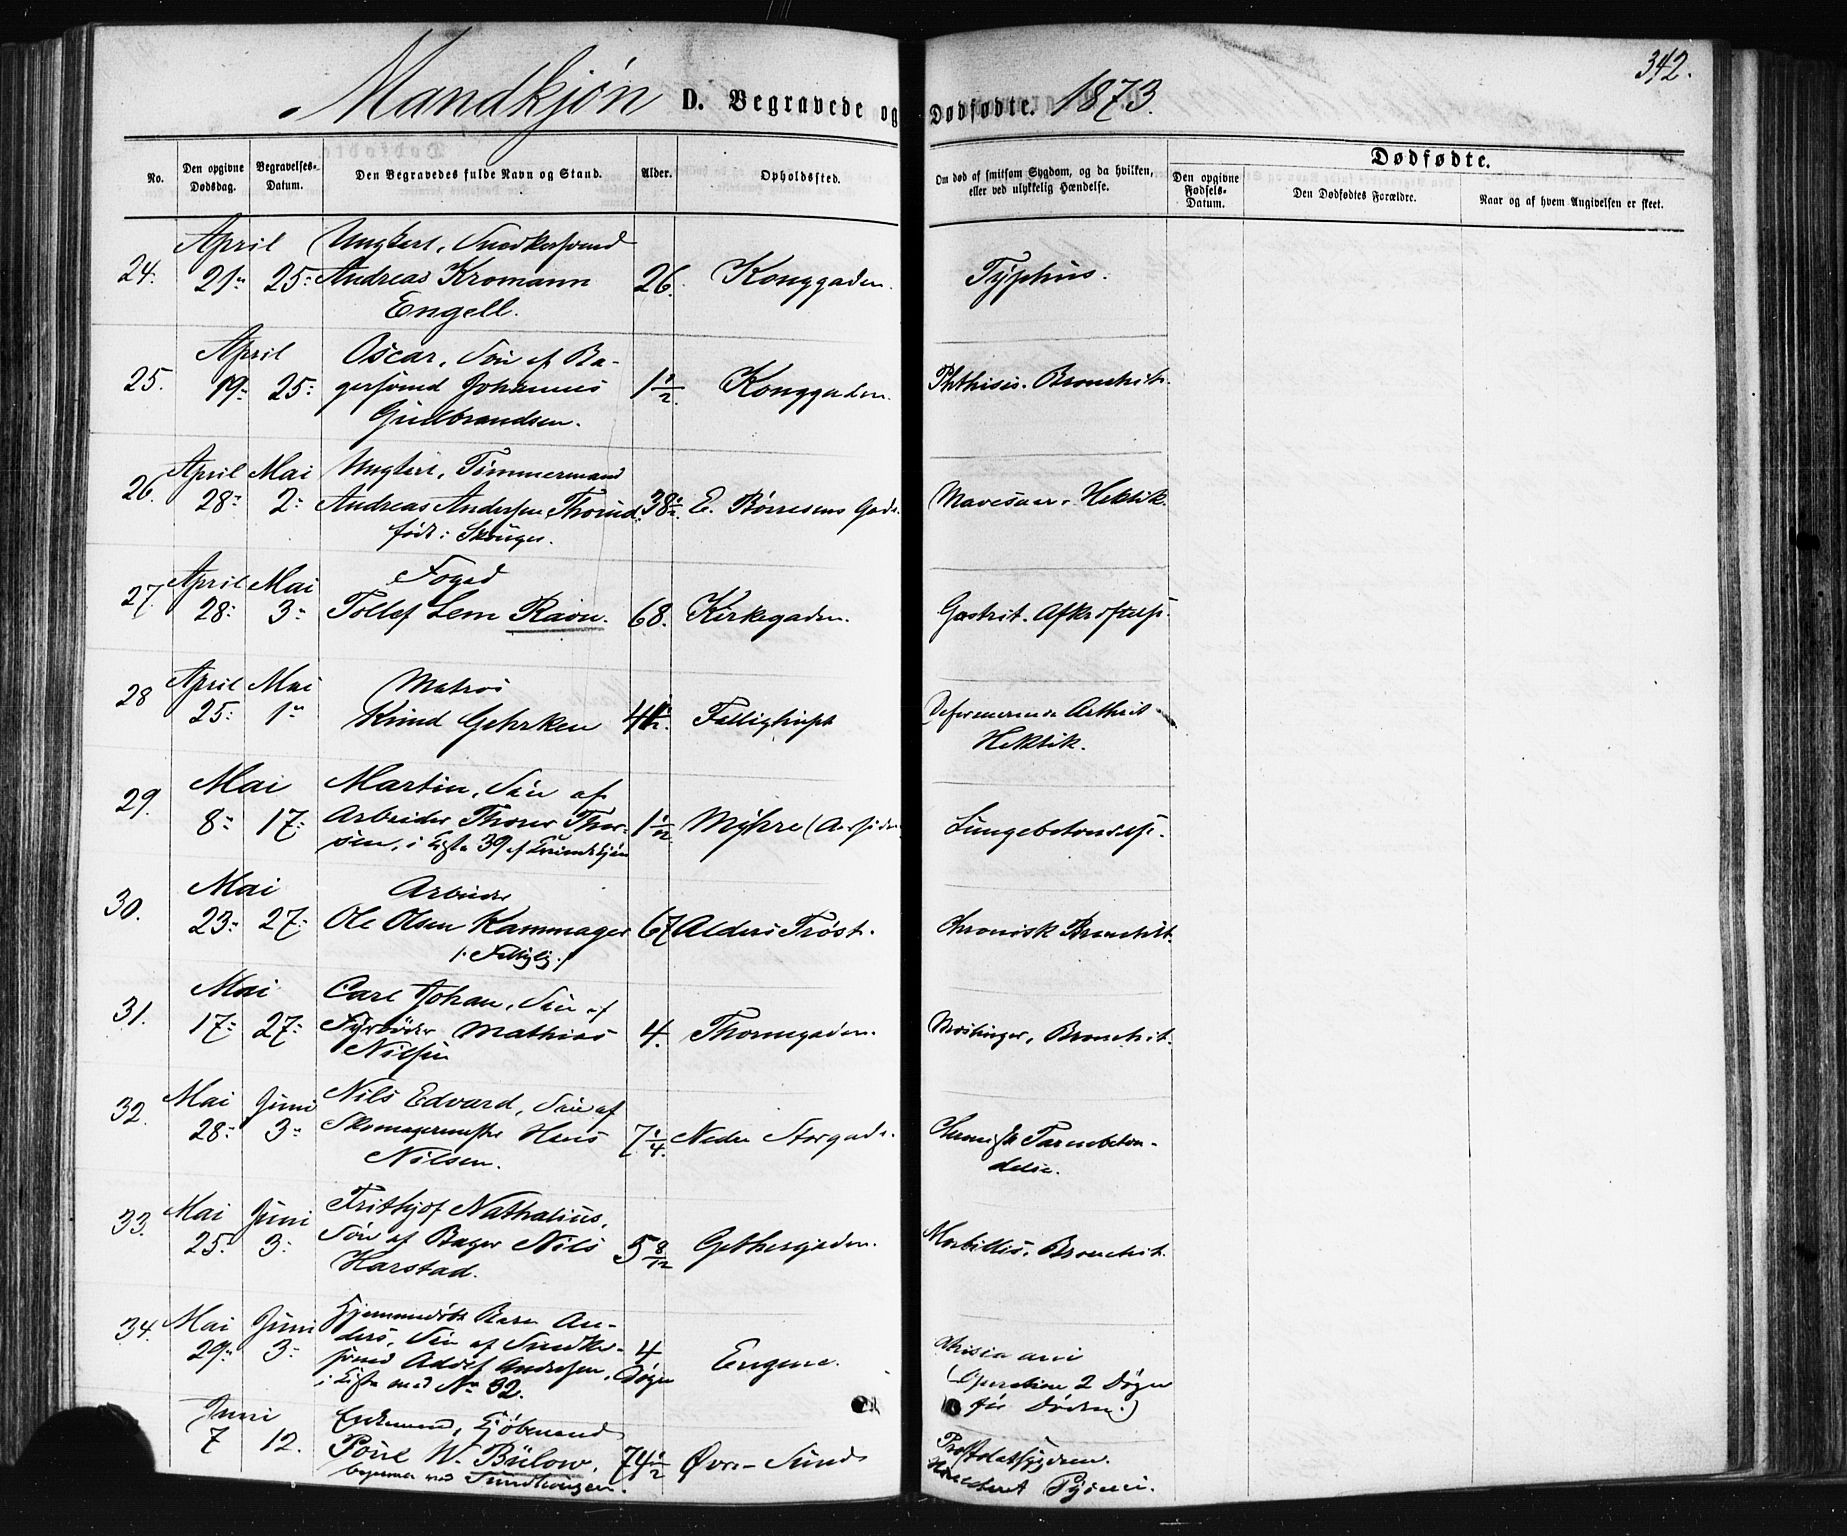 342.
Mandkjøn D. Begravede og Dødfødte. 1873.
No. Den opgivne Dødsdag. Begravelses-Datum. Den Begravedes fulde Navn og Stand. Alder. Opholdssted. Om død af smitsom Sygdom, og da hvilken, eller ved ulykkelig Hændelse. Dødfødte.
Den opgivne Fødsels-Datum. Den Dødfødtes Forældre. Naar og af hvem Angivelsen er skeet.
April Ungkarl, Snedkersvend
24. 21 25 Andreas Kromann 26. Konggaden. Typhus.
Engell.
April Oscar, Søn af Ba-
25. 19 25 gersvend Johannes 1 1/2. Konggaden. Phthisis. Bronchit.
Gulbrandsen.
April Mai Ungkarl, Tømmermand
26. 28 2 Andreas Andersen Thorud, 38 1/2. E. Børresens Gade Mavesaar. Hektik.
født i Skouger.
April Mai Foged
27. 28 3 Tollef Lem Ravn. 68. Kirkegaden. Gastrit. Afkræftelse.
April Mai Matros
28 25 1 Knud Gehrken Arthrit
Hektik.
Mai Martin, Søn af
29. 8 17 Arbeider Thorer Thor- Myhre Lungebetændelse.
sen, i Kiste 39 af Kvindekjøn
Mai Arbeider
30. 23 27 Ole Olsen Kammager 67 Alders Trøst. Chronisk Bronchit.
Mai Carl Johan, Søn af
31. 17 27 Fyrbøder Mathias 4. Thornegaden. Meslinger, Bronchit.
Nilsen
Mai Juni Nils Edvard, Søn af
32. 28 3 Skomagermester Hans 7 1/4. Nedre Storgade. Chronisk Tarmbetæn-
Nilsen. delse.
Mai Juni Frithjof Nathalius,
33. 25 3 Søn af Bager Nils 5 8/12 Gethesgaden. Morbilli, Bronchit.
Harstad.
Mai Juni Hjemmedøbt Barn An-
34. 29 3 ders, Søn af Snedker- 4 Engene. Atresia ani
svend Adolf Andersen, Døgn (Operation 2 Døgn
i Kiste med No 32. før Døden.)
Juni Enkemand, Kjøbmand
7 12. Poul W. Bülow, 74 1/2 Øvre Sund Prostatasygdom.
Pyæmi.